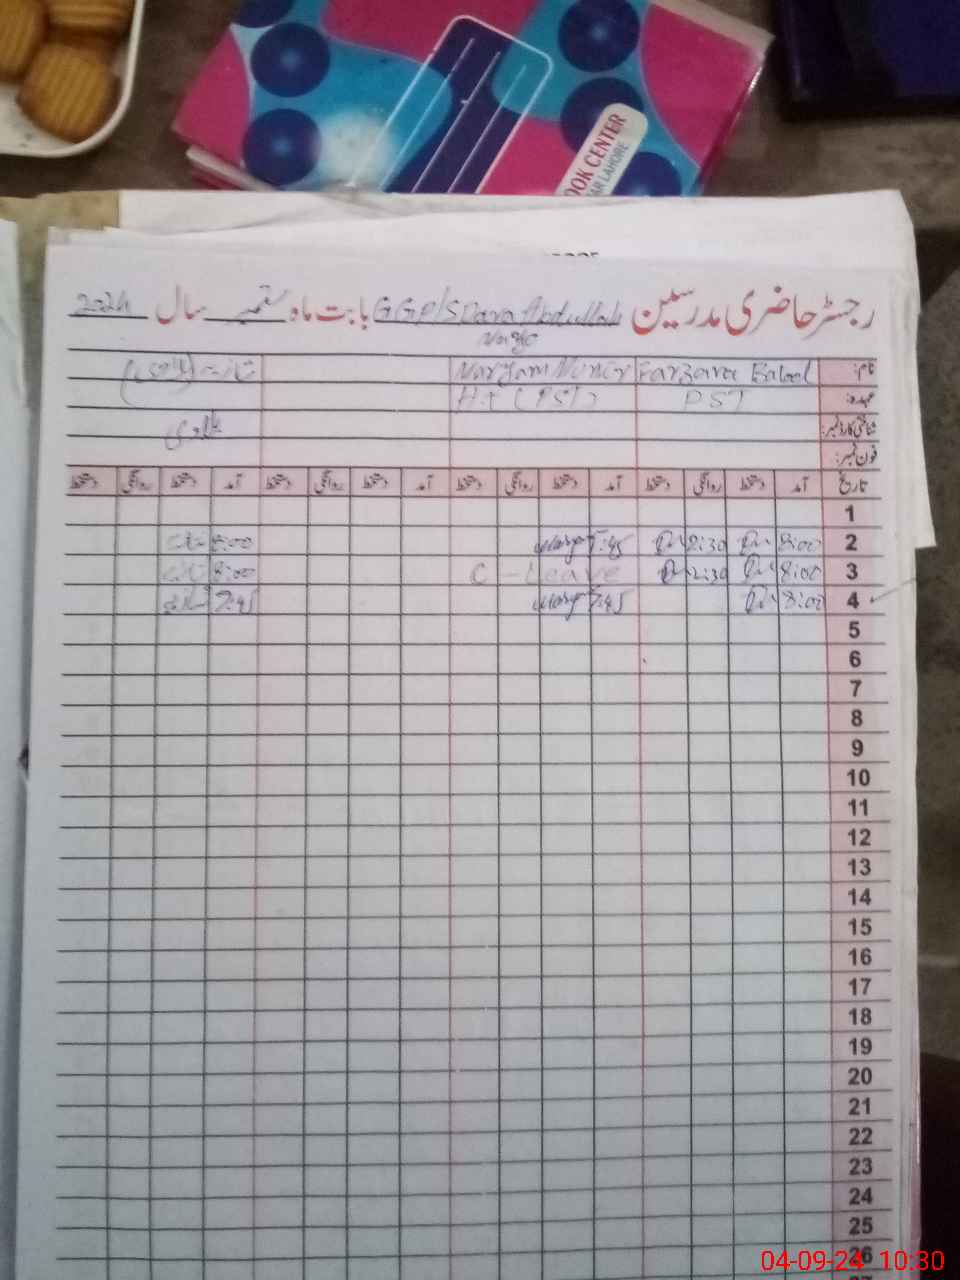 OOK CENTER
AR LAHORE
رجسٹر حاضری مدرسین GGP/S Dara Abdullah بابت ماہ ستمبر سال 2024
نام: Farzana Batool Maryam Munir
عہدہ: PST H.T (PST)
شناختی کارڈ نمبر:
فون نمبر:
تاریخ آمد دستخط روانگی دستخط آمد دستخط روانگی دستخط آمد دستخط روانگی دستخط آمد دستخط روانگی دستخط
1
2 8:00 2:30 7:45 8:00
3 8:00 2:30 C-Leave 8:00
4 8:00 7:45 7:45
5
6
7
8
9
10
11
12
13
14
15
16
17
18
19
20
21
22
23
24
25
26
04-09-24 10:30